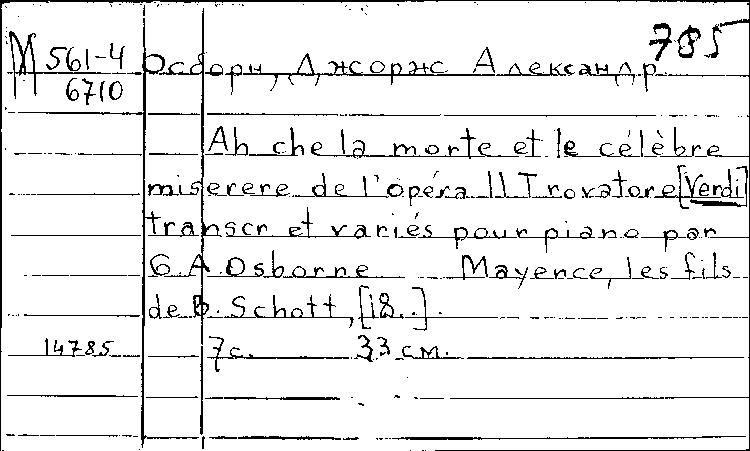 785
М 561-4 Осборн, Джорж Александр
6710
Ah che la morte et le célèbre
miserere de l'opéra Il Trovatore [Verdi]
transcr et variés pour piano par
G. A. Osborne Mayence, les fils
de B. Schott, [18..].
14785 7 с. 33 см.